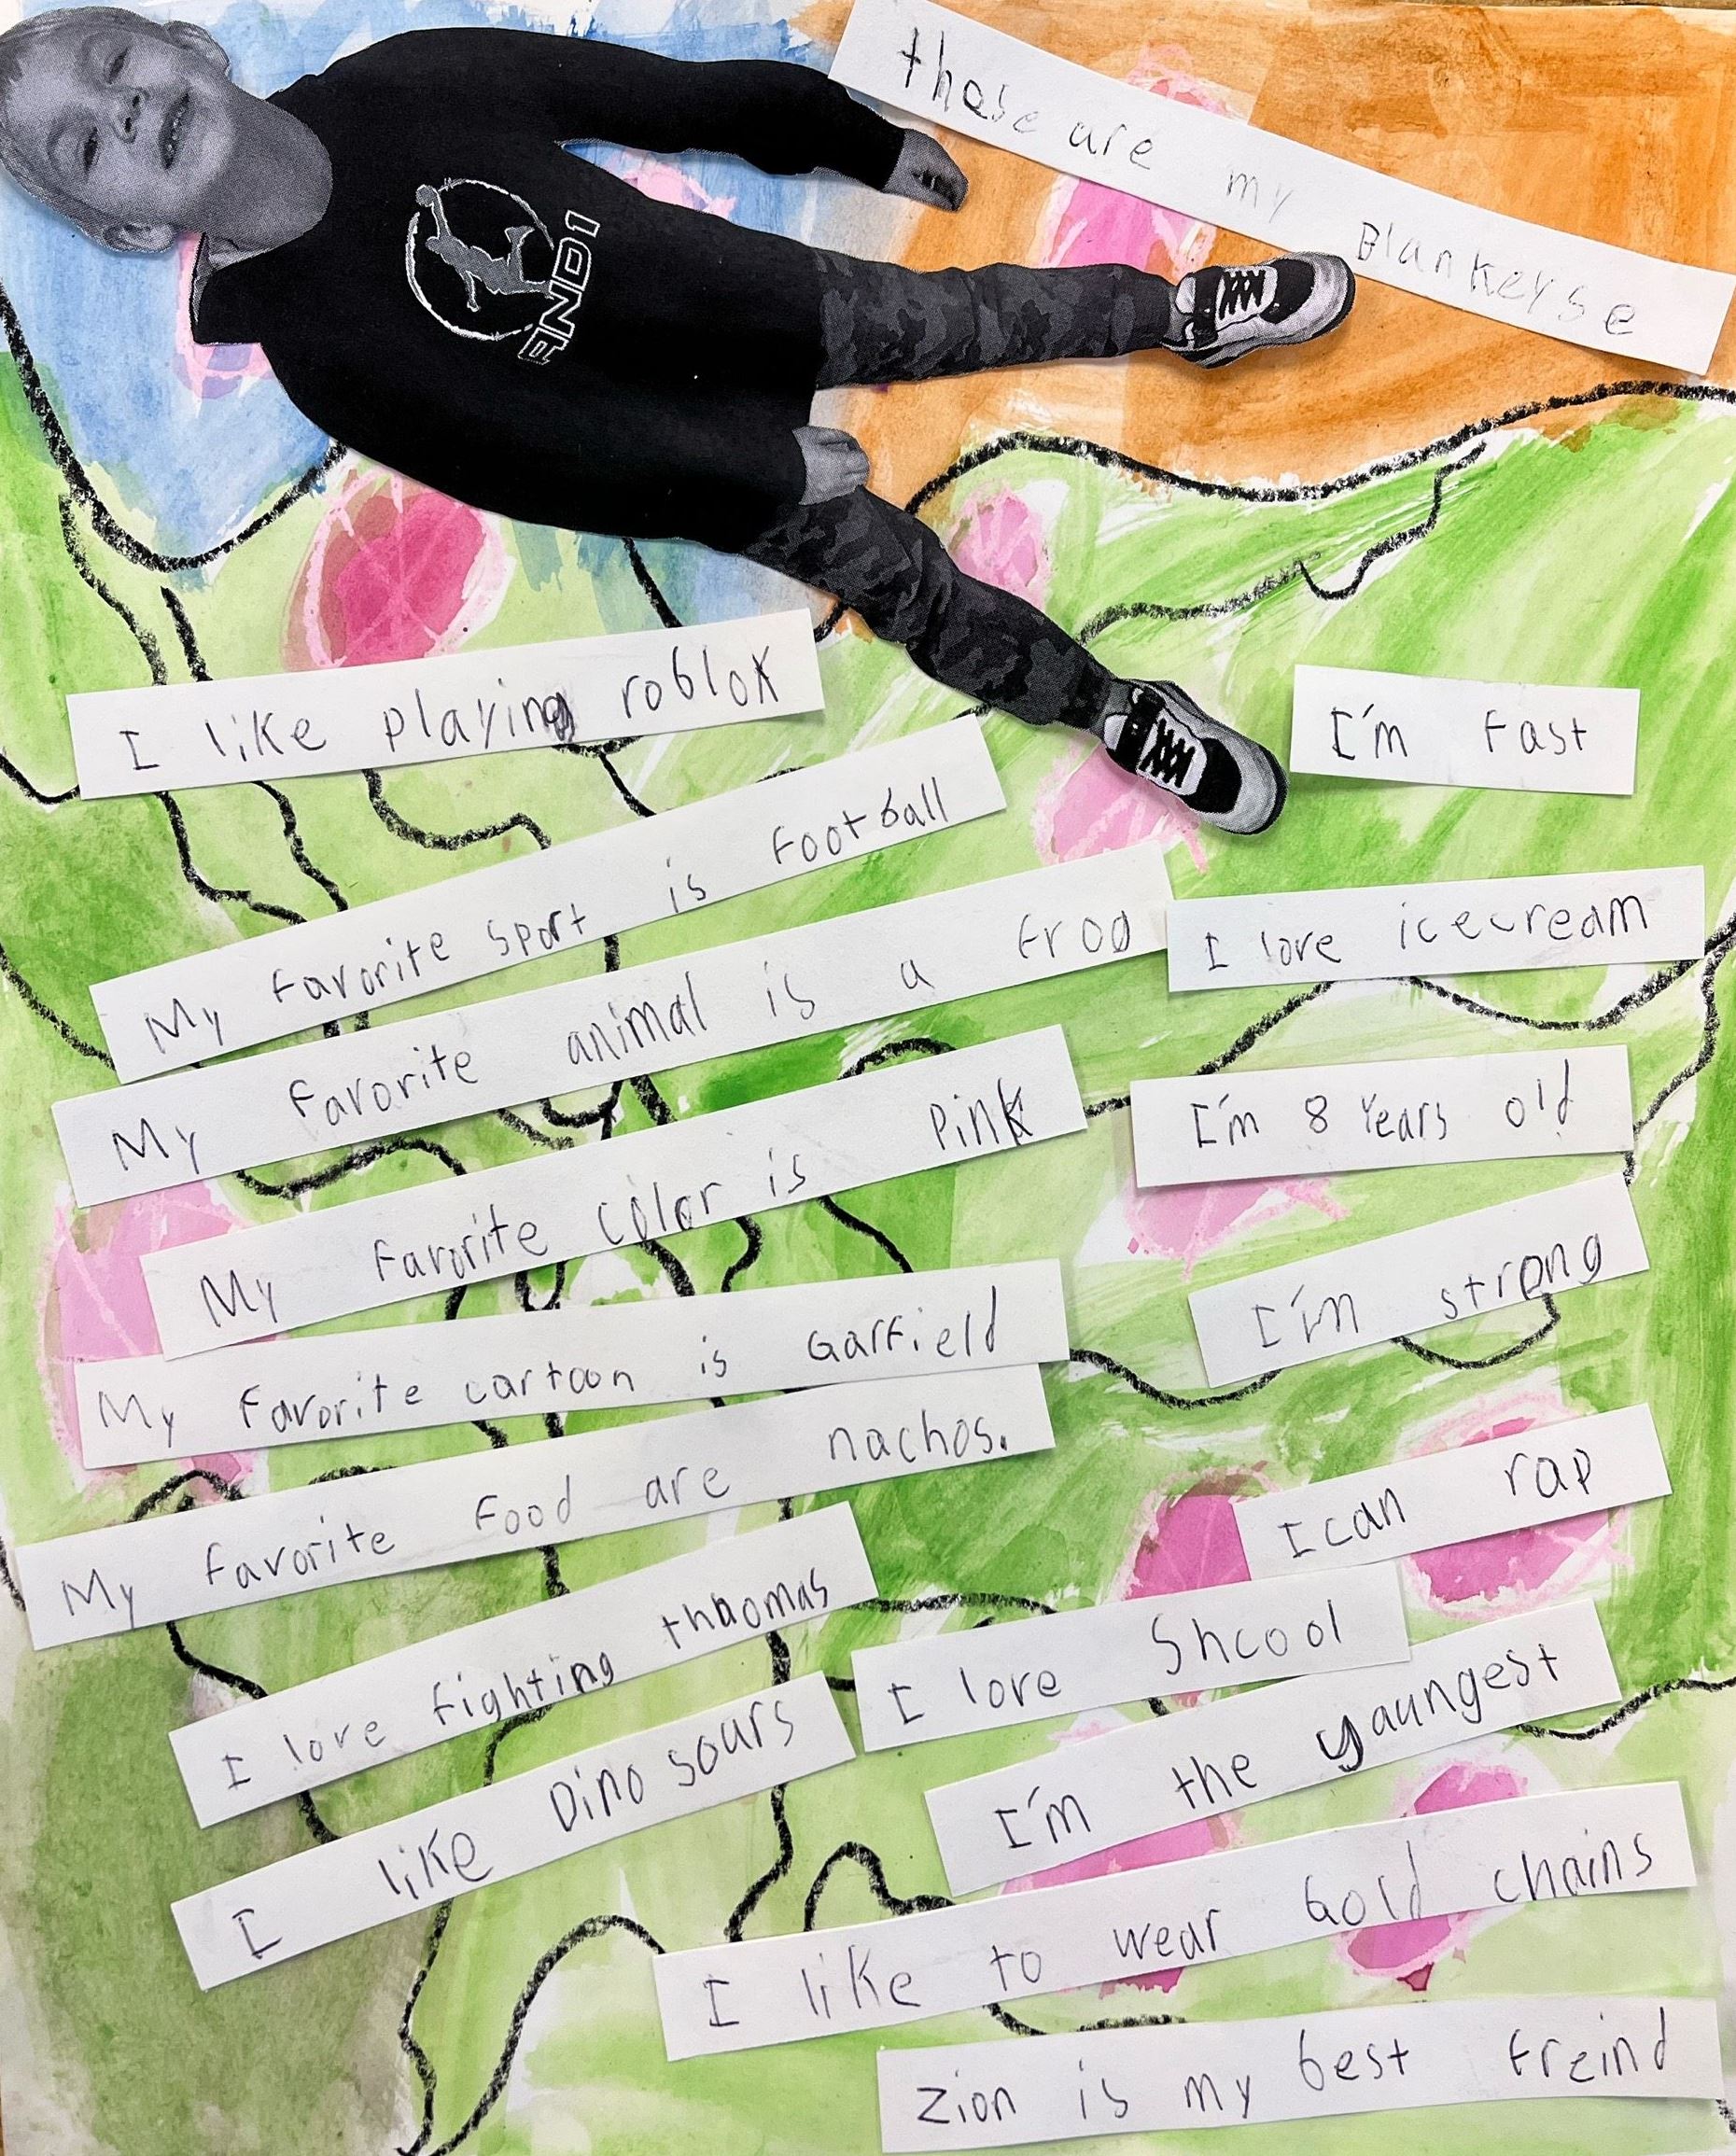 these are my Blankeyse
AND1
I like playing roblox
I'm fast
My favorite sport is football
My favorite animal is a frog
I love icecream
My favorite color is pink
I'm 8 years old
My favorite cartoon is Garfield
I'm strong
My favorite food are nachos.
I can rap
I love fighting thaomas
I love Shcool
I like Dino sours
I'm the yaungest
I like to wear Gold chains
Zion is my best freind